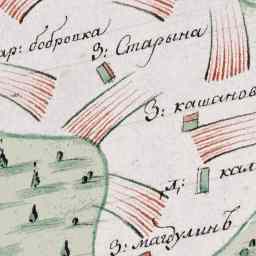 бобровка
З: Старына
З: кашанов
Д: кал
З: магдулинъ